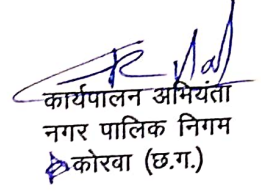 कार्यपालन अभियंता
नगर पालिक निगम
कोरवा (छ.ग.)